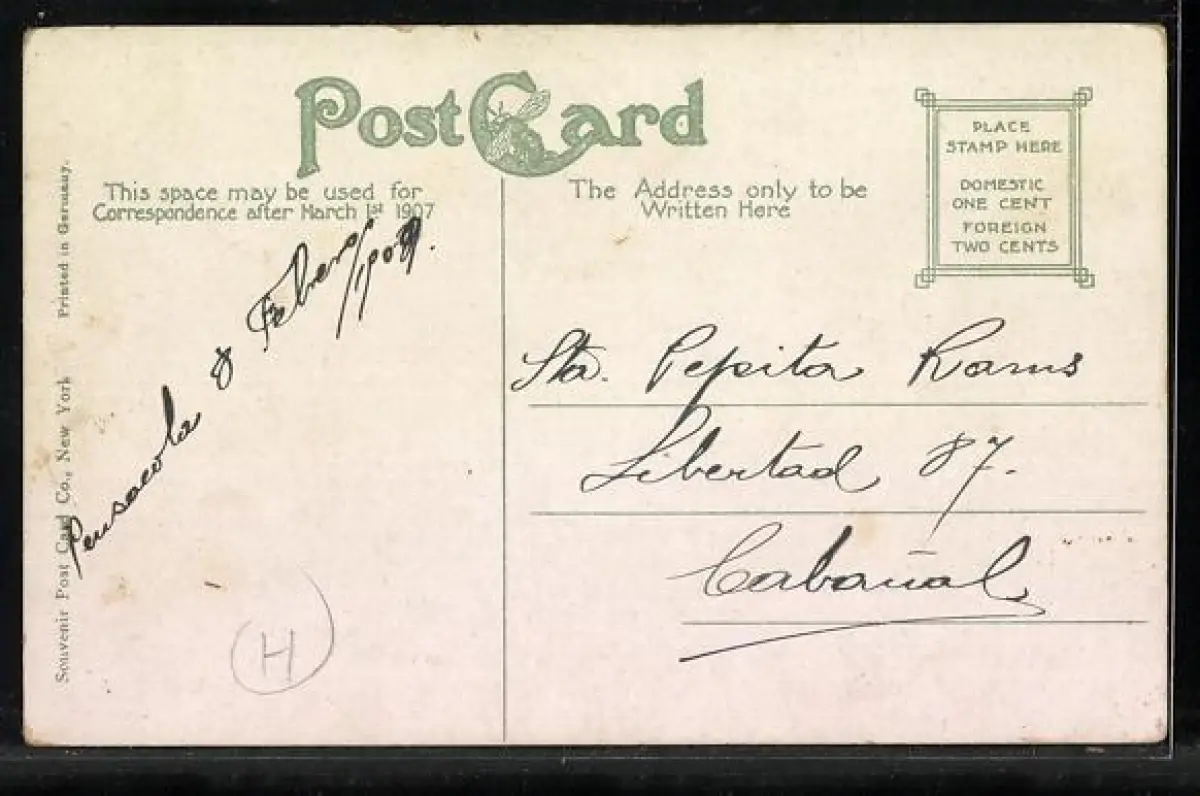 Post Card
This space may be used for
Correspondence after March 1st 1907
The Address only to be
Written Here
PLACE
STAMP HERE
DOMESTIC
ONE CENT
FOREIGN
TWO CENTS
Souvenir Post Card Co., New York Printed in Germany.
Pensacola 8 Febero/1909.
Sta. Pepita Rams
Libertad 87.
Cabañal
H